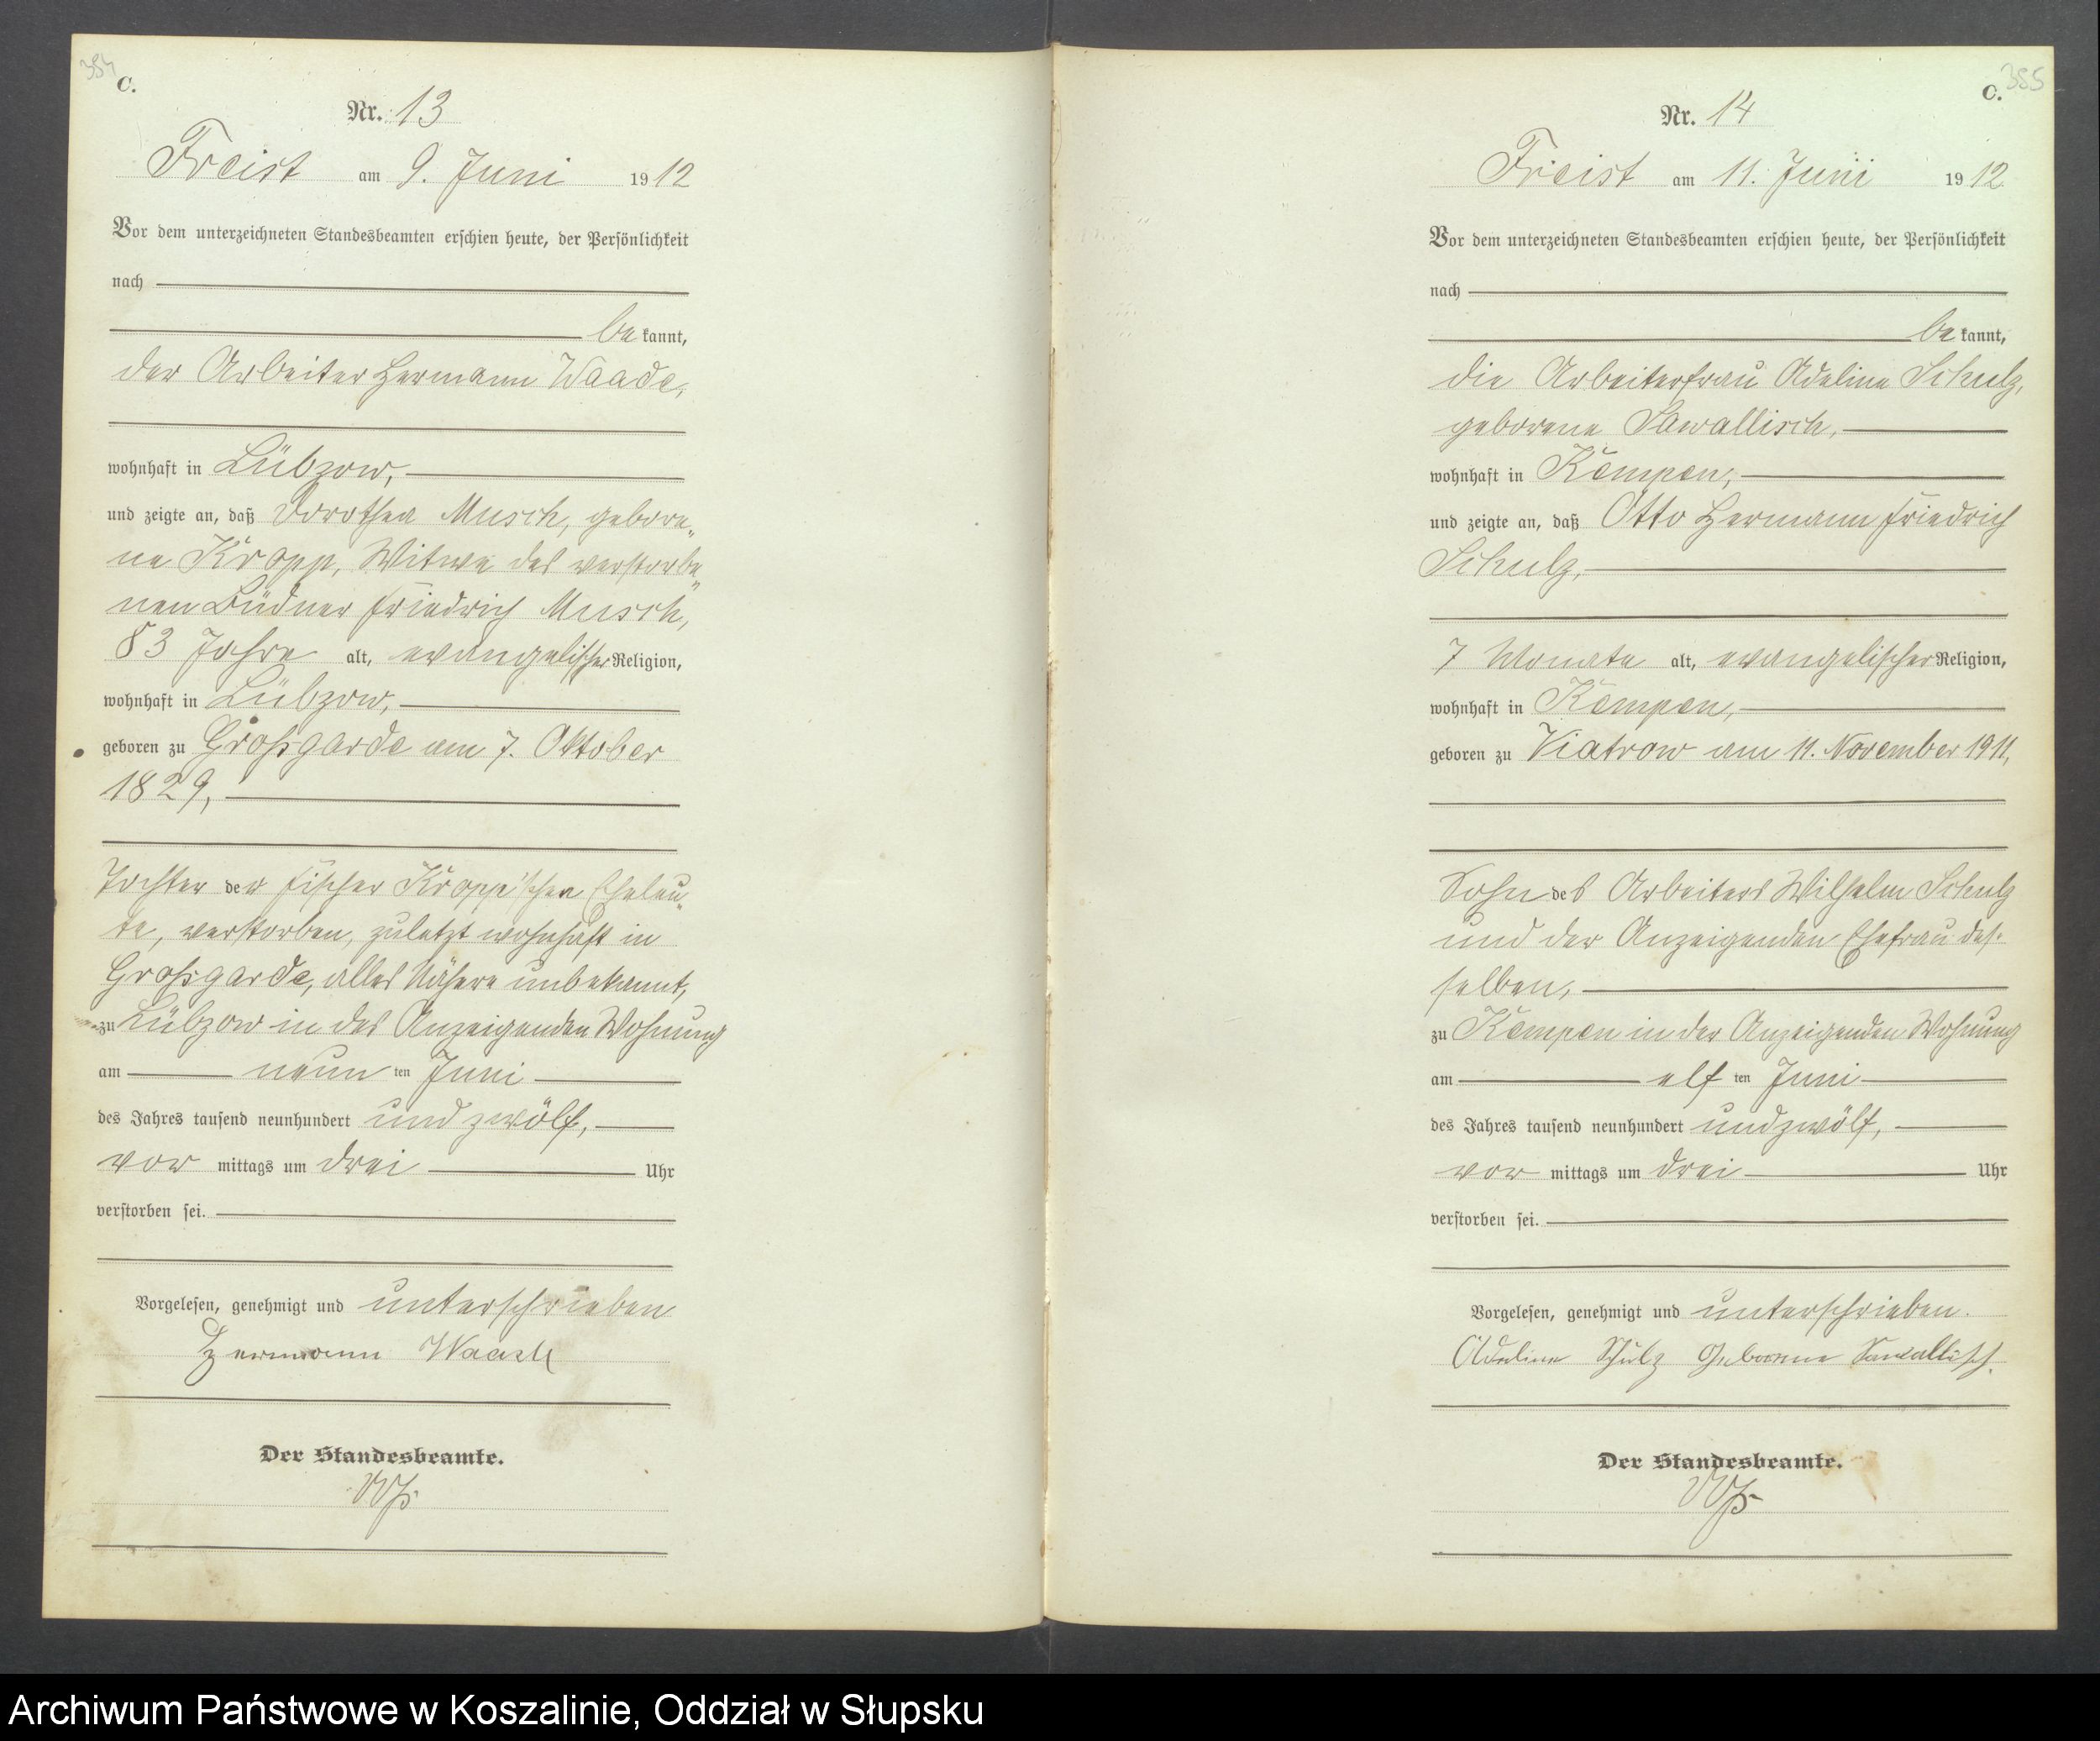 354
C.
Nr. 13
Freist am 9. Juni 1912
Vor dem unterzeichneten Standesbeamten erschien heute, der Persönlichkeit
nach
be kannt,
der Arbeiter Hermann Waade,
wohnhaft in Lübzow,
und zeigte an, daß Dorothea Musch, gebore„
ne Kropp, Witwe des verstorbe„
nen Büdner Friedrich Musch,
83 Jahre alt, evangelischer Religion,
wohnhaft in Lübzow,
geboren zu Großgarde am 7. Oktober
1829,
Tochter der Fischer Kropp'schen Eheleu„
te, verstorben, zuletzt wohnhaft in
Großgarde, alles Nähere unbekannt,
zu Lübzow in des Anzeigenden Wohnung
am neun ten Juni
des Jahres tausend neunhundert und zwölf,
vor mittags um drei Uhr
verstorben sei.
Vorgelesen, genehmigt und unterschrieben
Hermann Waade
Der Standesbeamte.
355
C.
Nr. 14
Freist am 11. Juni 1912
Vor dem unterzeichneten Standesbeamten erschien heute, der Persönlichkeit
nach
be kannt,
die Arbeiterfrau Adeline Schulz,
geborene Sawallisch,
wohnhaft in Kempen,
und zeigte an, daß Otto Hermann Friedrich
Schulz,
7 Monate alt, evangelischer Religion,
wohnhaft in Kempen,
geboren zu Viatrow am 11. November 1911,
Sohn des Arbeiters Wilhelm Schulz
und der Anzeigenden Ehefrau des-
selben,
zu Kempen in der Anzeigenden Wohnung
am elf ten Juni
des Jahres tausend neunhundert und zwölf,
vor mittags um drei Uhr
verstorben sei.
Vorgelesen, genehmigt und unterschrieben.
Adeline Schulz Geborene Sawallisch.
Der Standesbeamte.
Archiwum Państwowe w Koszalinie, Oddział w Słupsku